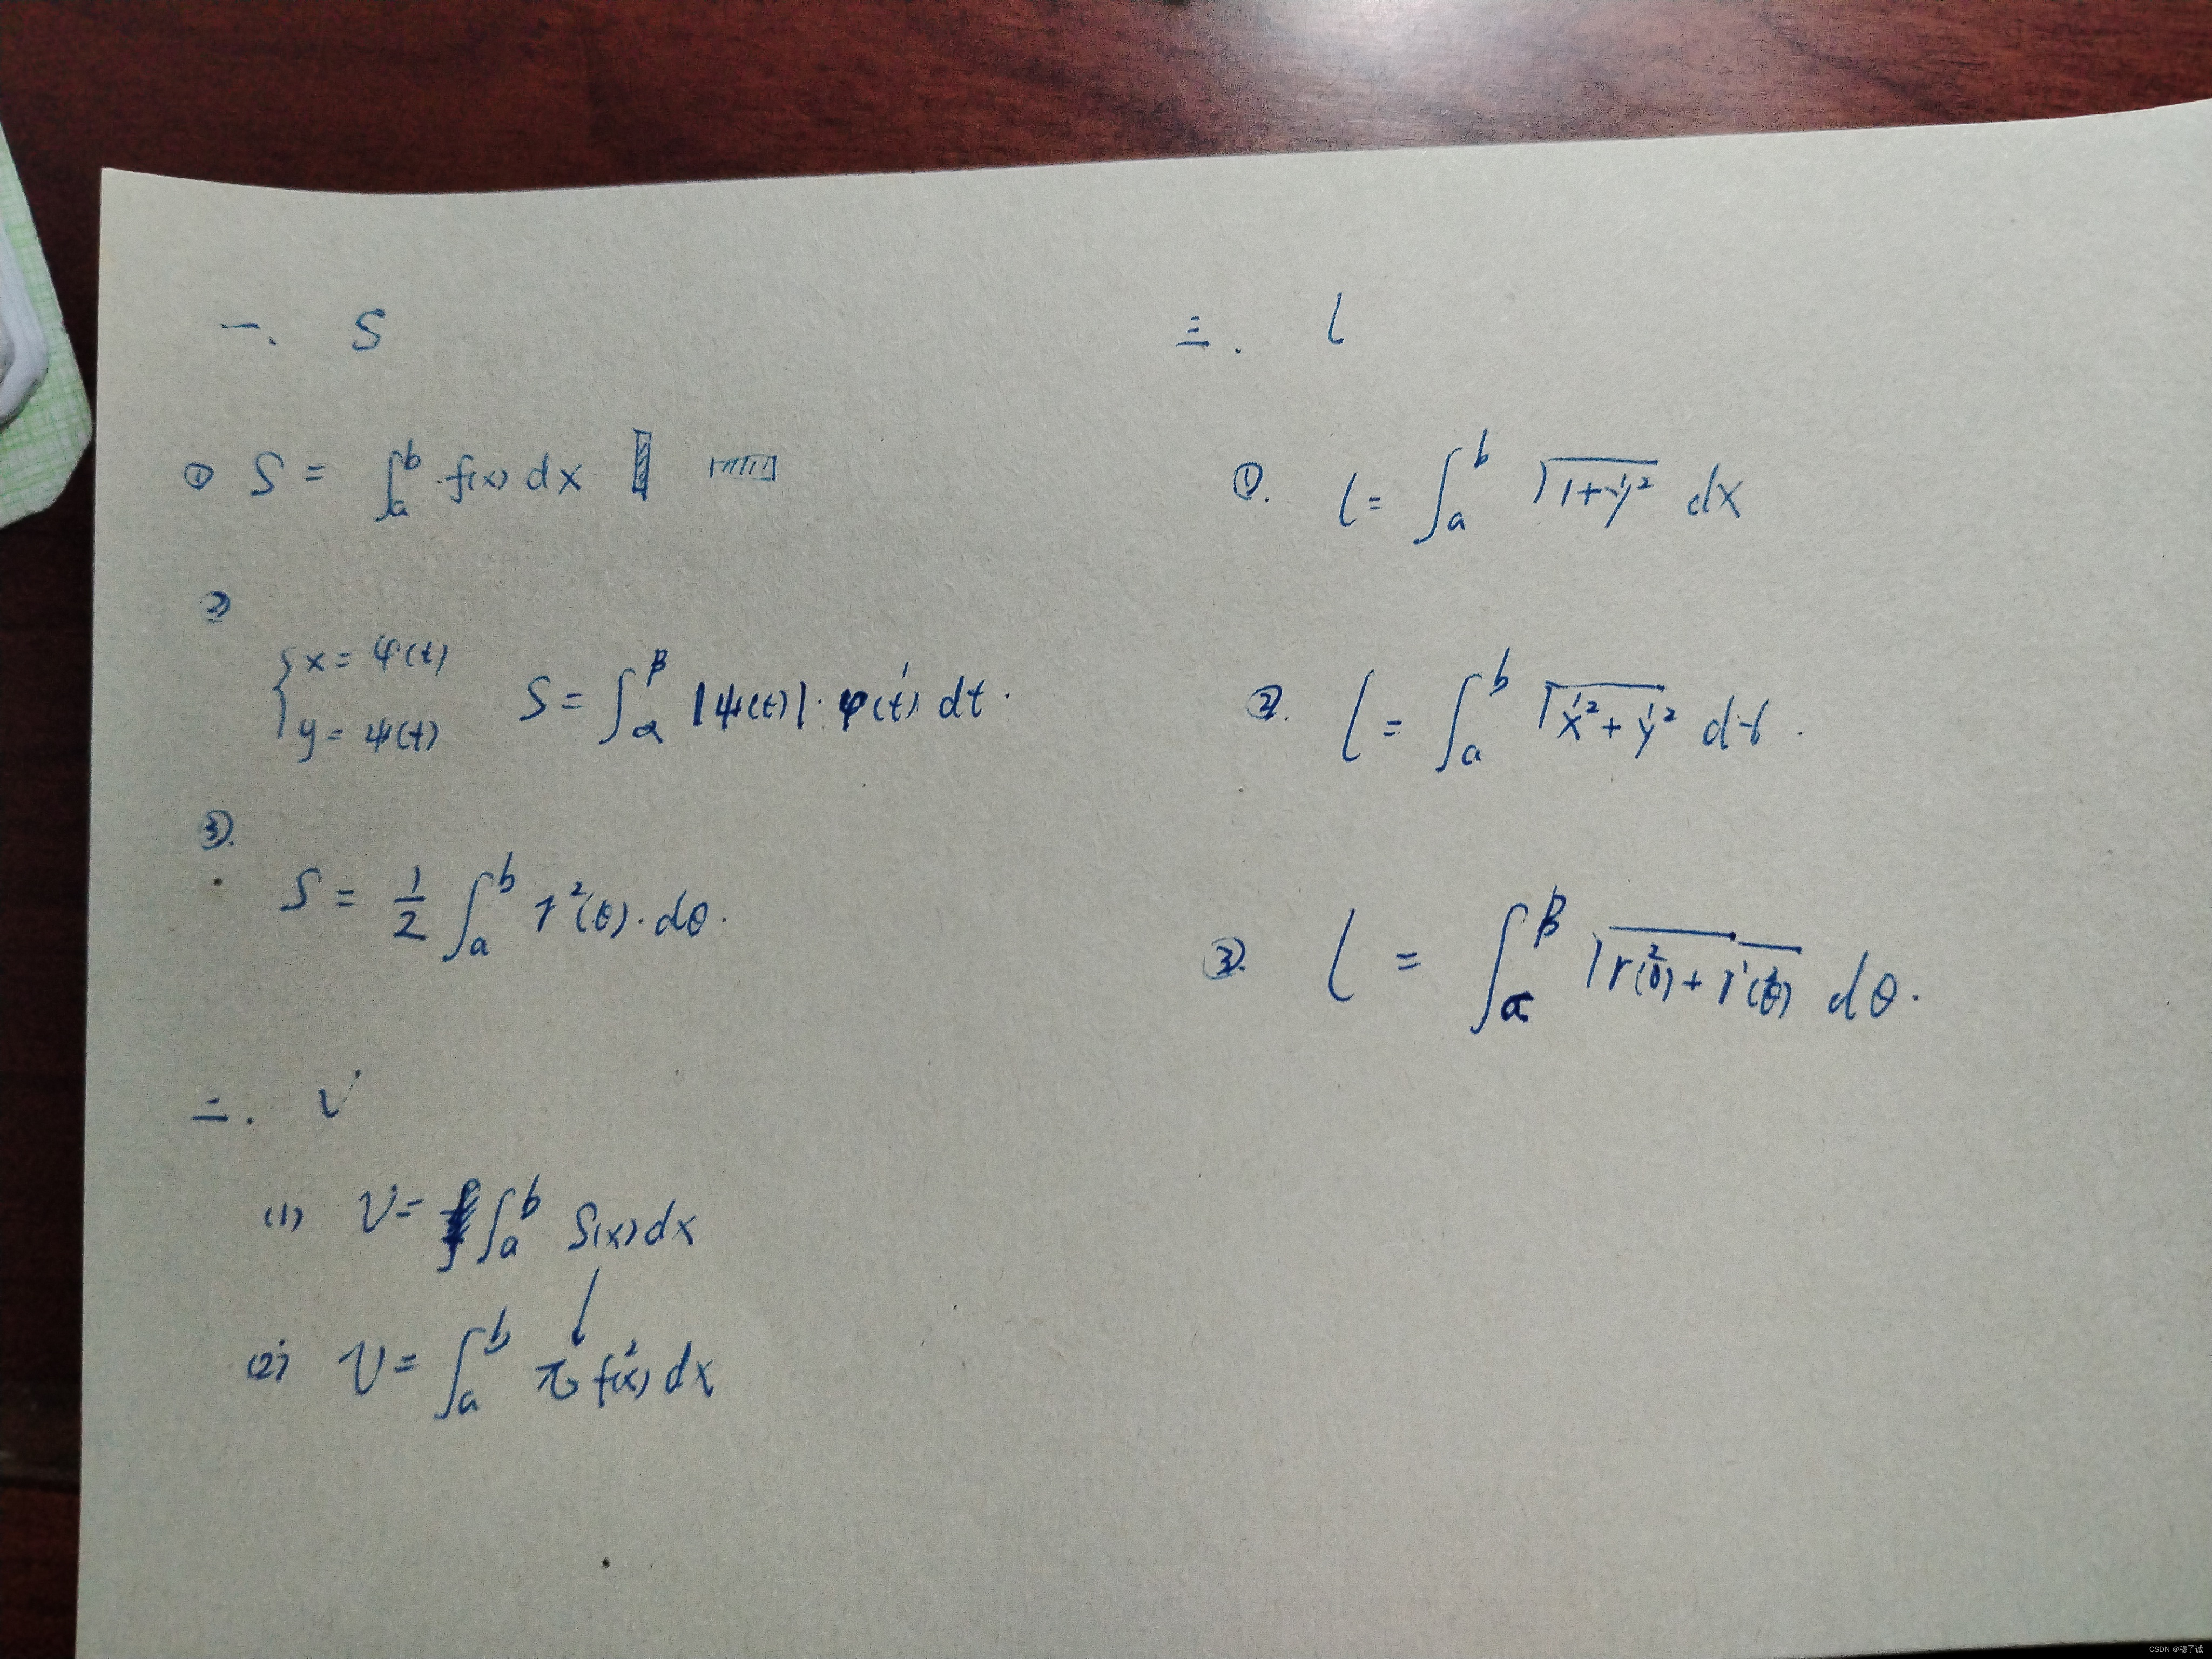 一. S
① S = ∫_a^b f(x) dx
②
{ x = φ(t)
y = ψ(t)
S = ∫_α^β |ψ(t)|·φ'(t) dt.
③.
S = 1/2 ∫_a^b r²(θ)·dθ.
二. V
(1) V = ∫_a^b S(x) dx
↓
(2) V = ∫_a^b π f²(x) dx
三. l
①. l = ∫_a^b √(1+y'²) dx
②. l = ∫_a^b √(x'²+y'²) dt.
③. l = ∫_α^β √(r²(θ)+r'²(θ)) dθ.
CSDN @穆子诚